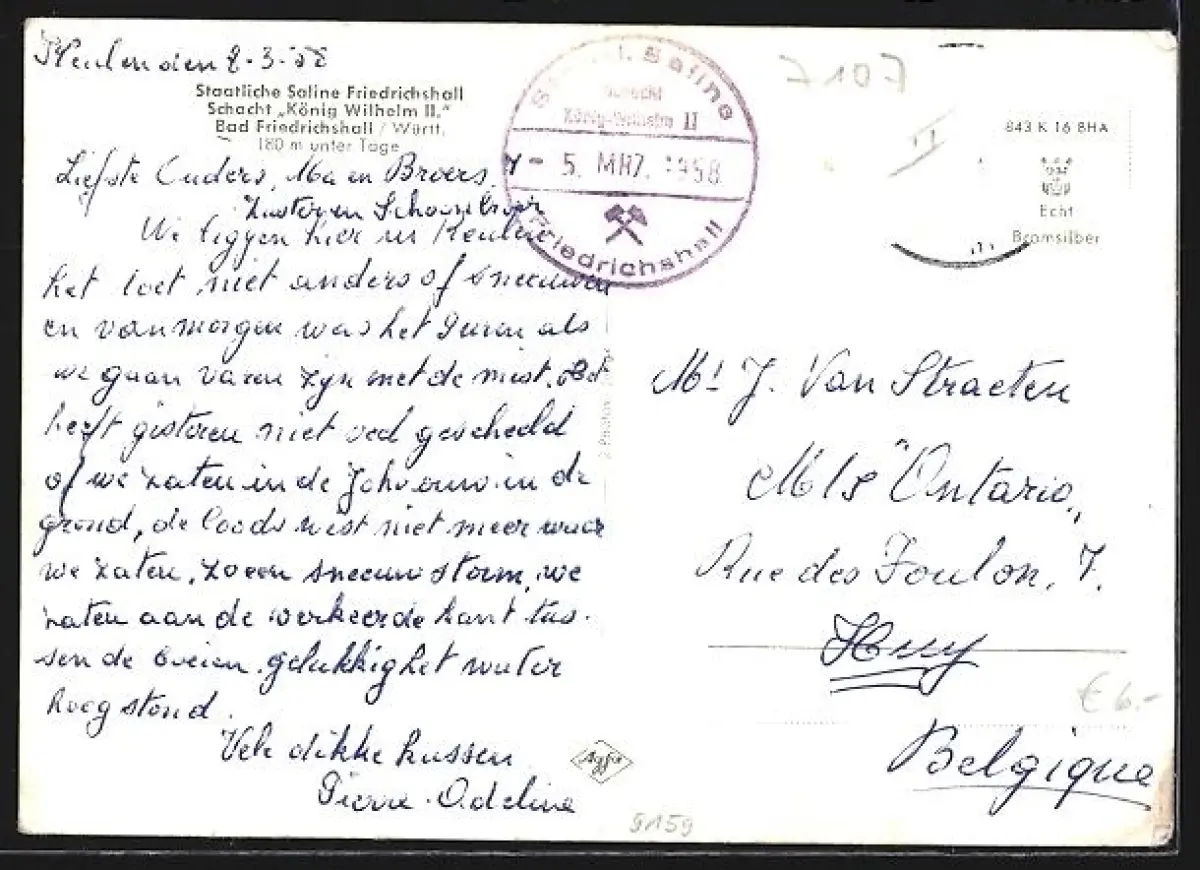 Keulen den 8-3-58
Staatliche Saline Friedrichshall
Schacht „König Wilhelm II."
Bad Friedrichshall / Württ.
180 m unter Tage
Liefste Ouders, Ma en Broers,
Zuster en Schoonbroer
We liggen hier in Keulen
het doet niet anders of sneeuwen
en van morgen was het 9 uren als
we gaan varen zijn met de mist. Het
heeft gisteren niet veel gescheeld
of we zaten in de in de
grond, de loods wist niet meer waar
we zaten, zo een sneeuwstorm, we
zaten aan de verkeerde kant tus-
sen de boeien, gelukkig het water
hoog stond.
Vele dikke kussen
Pierre - Odeline
Staatl. Saline
Schacht
König Wilhelm II
- 5. MRZ. 1958
Friedrichshall
7107
II
843 K 16 BHA
Echt
Bromsilber
Mr J. Van Straeten
M/s "Ontario„
Rue des Foulon, 7.
Huy
Belgique
€ 6.-
Agfa
9159